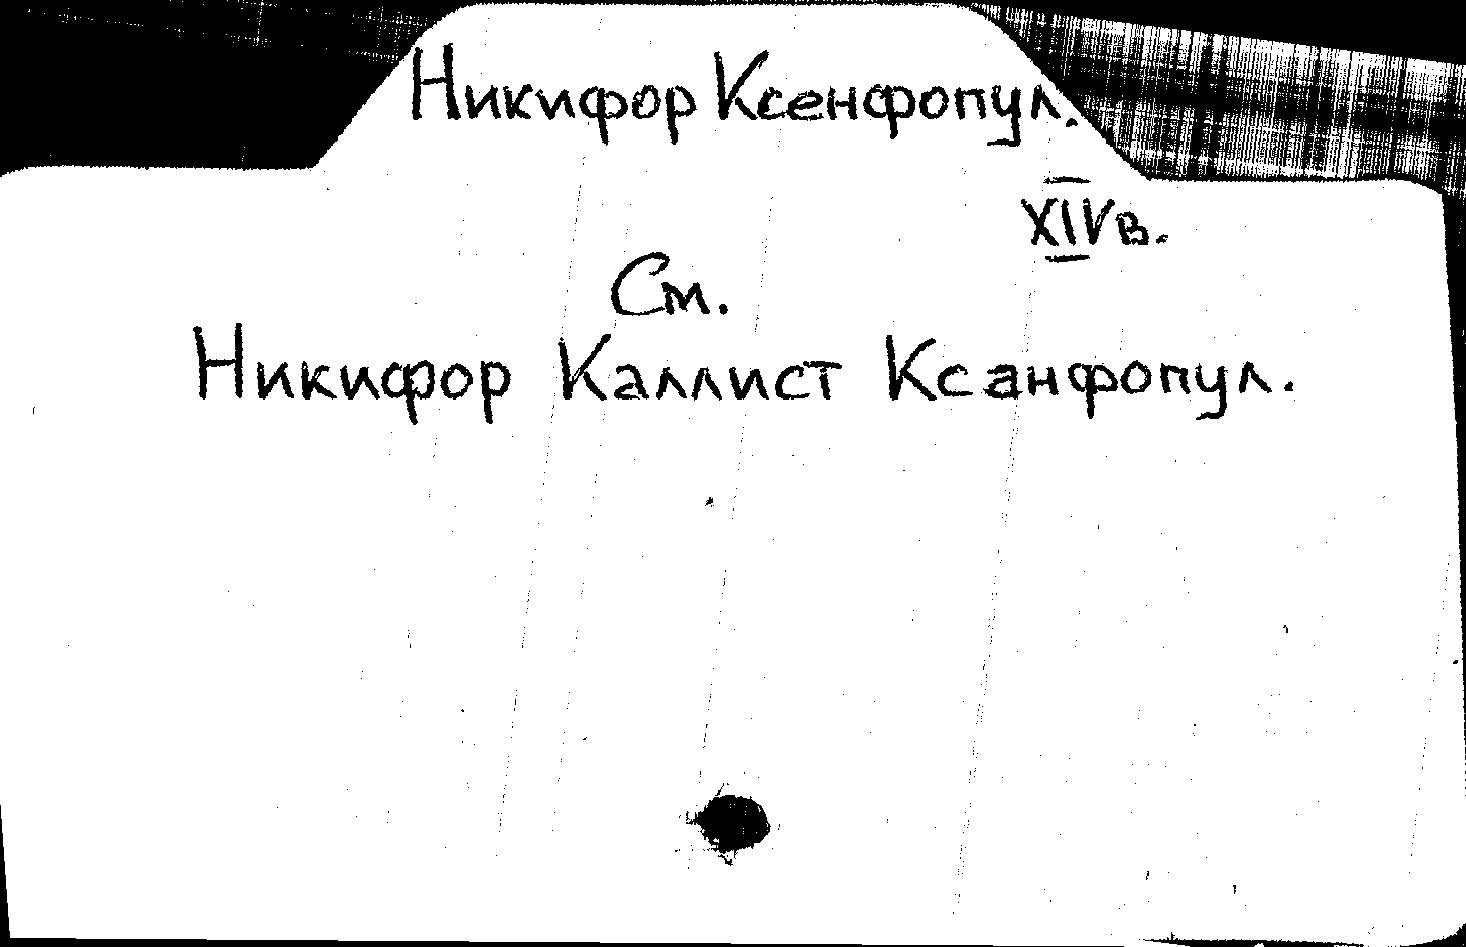 Никифор Ксенфопул.
XIV в.
См.
Никифор Каллист Ксанфопул.